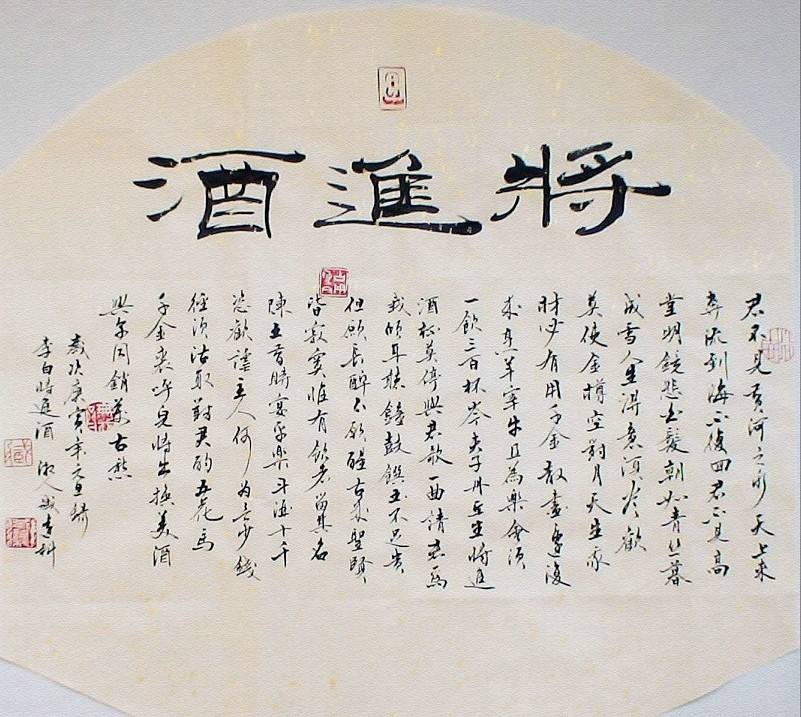 將進酒
君不見黃河之水天上來
奔流到海不復回君不見高
堂明鏡悲白髮朝如青絲暮
成雪人生得意須盡歡
莫使金樽空對月天生我
材必有用千金散盡還復
來烹羊宰牛且為樂會須
一飲三百杯岑夫子丹丘生將進
酒杯莫停與君歌一曲請君為
我傾耳聽鐘鼓饌玉不足貴
但願長醉不願醒古來聖賢
皆寂寞惟有飲者留其名
陳王昔時宴平樂斗酒十千
恣歡謔主人何為言少錢
徑須沽取對君酌五花馬
千金裘呼兒將出換美酒
與爾同銷萬古愁
歲次庚寅年元旦錄
李白將進酒